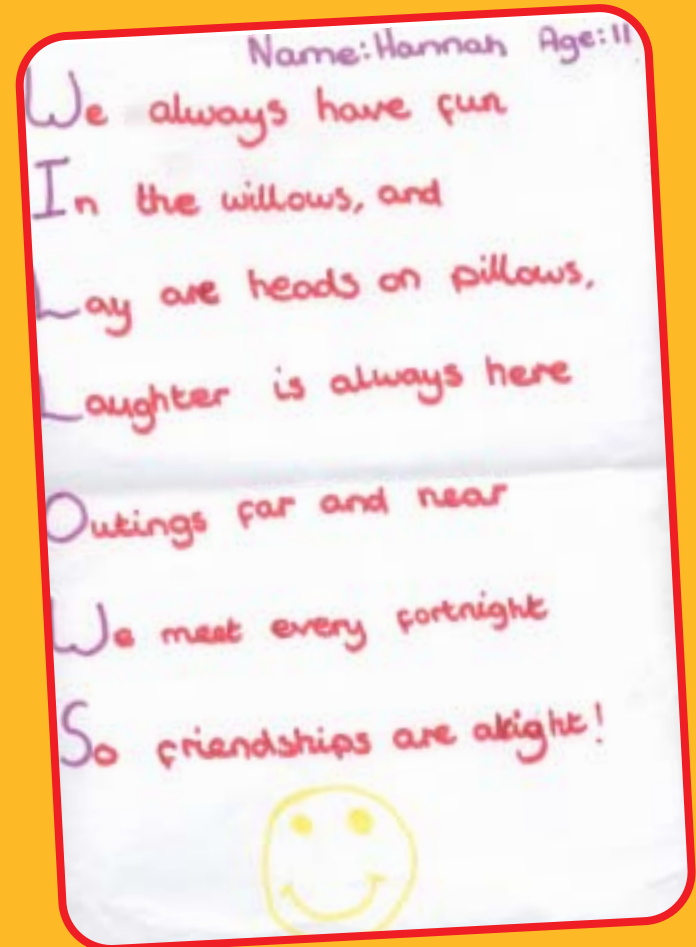 Name: Hannah Age: 11
We always have fun
In the willows, and
Lay are heads on pillows,
Laughter is always here
Outings far and near
We meet every fortnight
So friendships are alright!